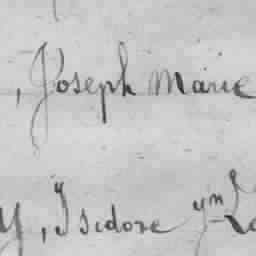 , Joseph Marie
y, Isidore